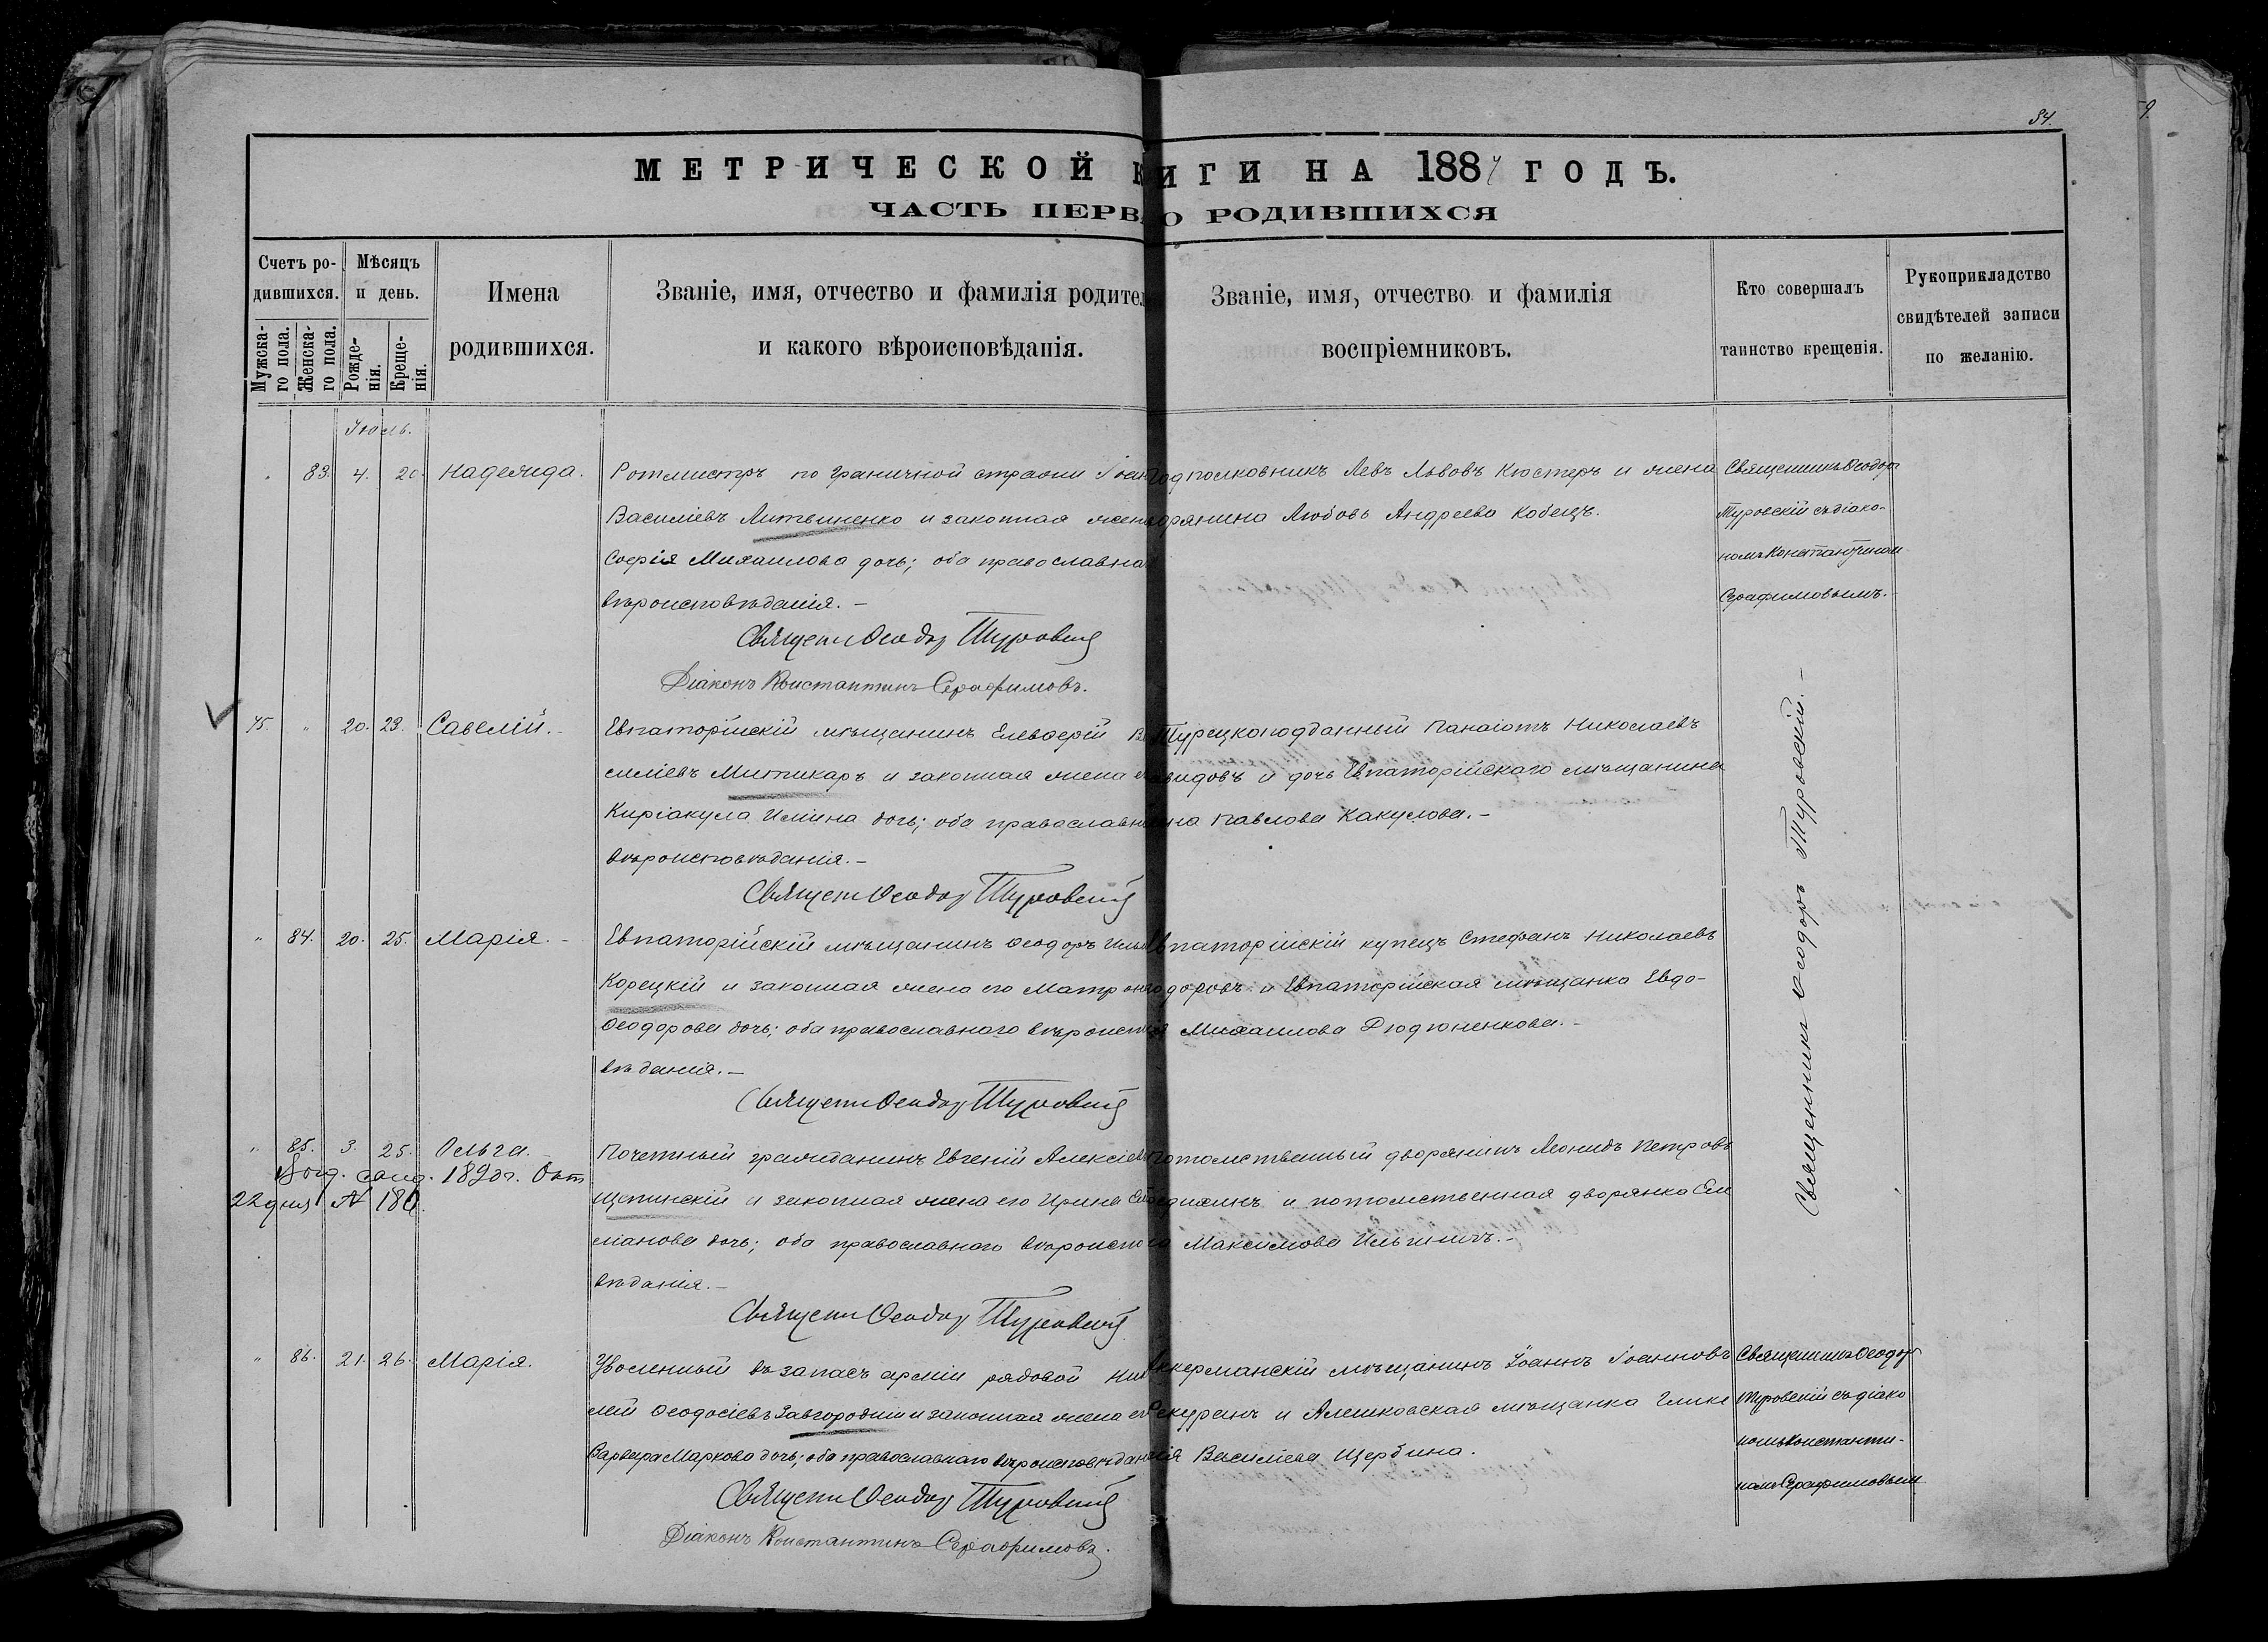 84.
9.
МЕТРИЧЕСКОЙ К
ИГИ НА 1887 ГОДЪ.
ЧАСТЬ ПЕРВА
О РОДИВШИХСЯ
Счетъ ро-
дившихся.
Мужска-
го пола.
Женска-
го пола.
Мѣсяцъ
и день.
Рожде-
нія.
Креще-
нія.
Имена
родившихся.
Званіе, имя, отчество и фамилія родител
и какого вѣроисповѣданія.
Званіе, имя, отчество и фамилія
воспріемниковъ.
Кто совершалъ
таинство крещенія.
Рукоприкладство
свидѣтелей записи
по желанію.
Іюль.
" 83. 4. 20. Надежда.
Ротмистръ пограничной стражи
Василіевъ Литвиненко и законная жена
Софія Михаилова дочь; оба православна
вѣроисповѣданія. –
Священ Ѳеодор Туровскій
Діаконъ Константинъ Серафимовъ.
одполковникъ Левъ Львовъ Кюстеръ и жена
орянина Любовь Андреева Кобецъ.
Священникъ Ѳеодоръ
Туровскій съ діако-
номъ Константиномъ
Серафимовымъ.
75. " 20. 23. Савелій. –
Евпаторійскій мѣщанинъ Елевѳерій
силіевъ Митикаръ и законная жена
Киріакула Ильина дочь; оба православн
вѣроисповѣданія. –
Священ Ѳеодор Туровскій
Турецкоподданный Панаіотъ Николаевъ
видовъ и дочь Евпаторійскаго мѣщанина
на Павлова Какулова. –
Священникъ Ѳеодоръ Туровскій. –
" 84. 20. 25. Марія. –
Евпаторійскій мѣщанинъ Ѳеодоръ Ильи
Корецкій и законная жена его Матрона
Ѳеодорова дочь; оба православнаго вѣроиспо
вѣданія. –
Священ Ѳеодор Туровскій
Евпаторійскій купецъ Стефанъ Николаевъ
одоровъ и Евпаторійская мѣщанка Евдо-
Михаилова Дюдюненкова. –
" 85. 3. 25. Ольга. –
189 г. Окт
22 дня № 180.
Почетный гражданинъ Евгеній Алексіевъ
Щепинскій и законная жена его Ирина
ліанова дочь; оба православнаго вѣроиспо
вѣданія. –
Священ Ѳеодор Туровскій
Потомственный дворянинъ Леонидъ Петровъ
и потомственная дворянка Ел
Максимова Ильяшичъ. –
" 86. 21. 26. Марія.
Уволенный въ запасъ арміи рядовой
лей Ѳеодосіевъ Завгородній и законная жена ег
Варвара Маркова дочь; оба православнаго вѣроисповѣдан
Священ Ѳеодор Туровскій
Діаконъ Константинъ Серафимовъ.
Аккерманскій мѣщанинъ Іоаннъ Іоанновъ
и Алешковская мѣщанка Глике
рія Василіева Щербина.
Священникъ Ѳеодоръ
Туровскій съ діако
номъ Константи-
номъ Серафимовым